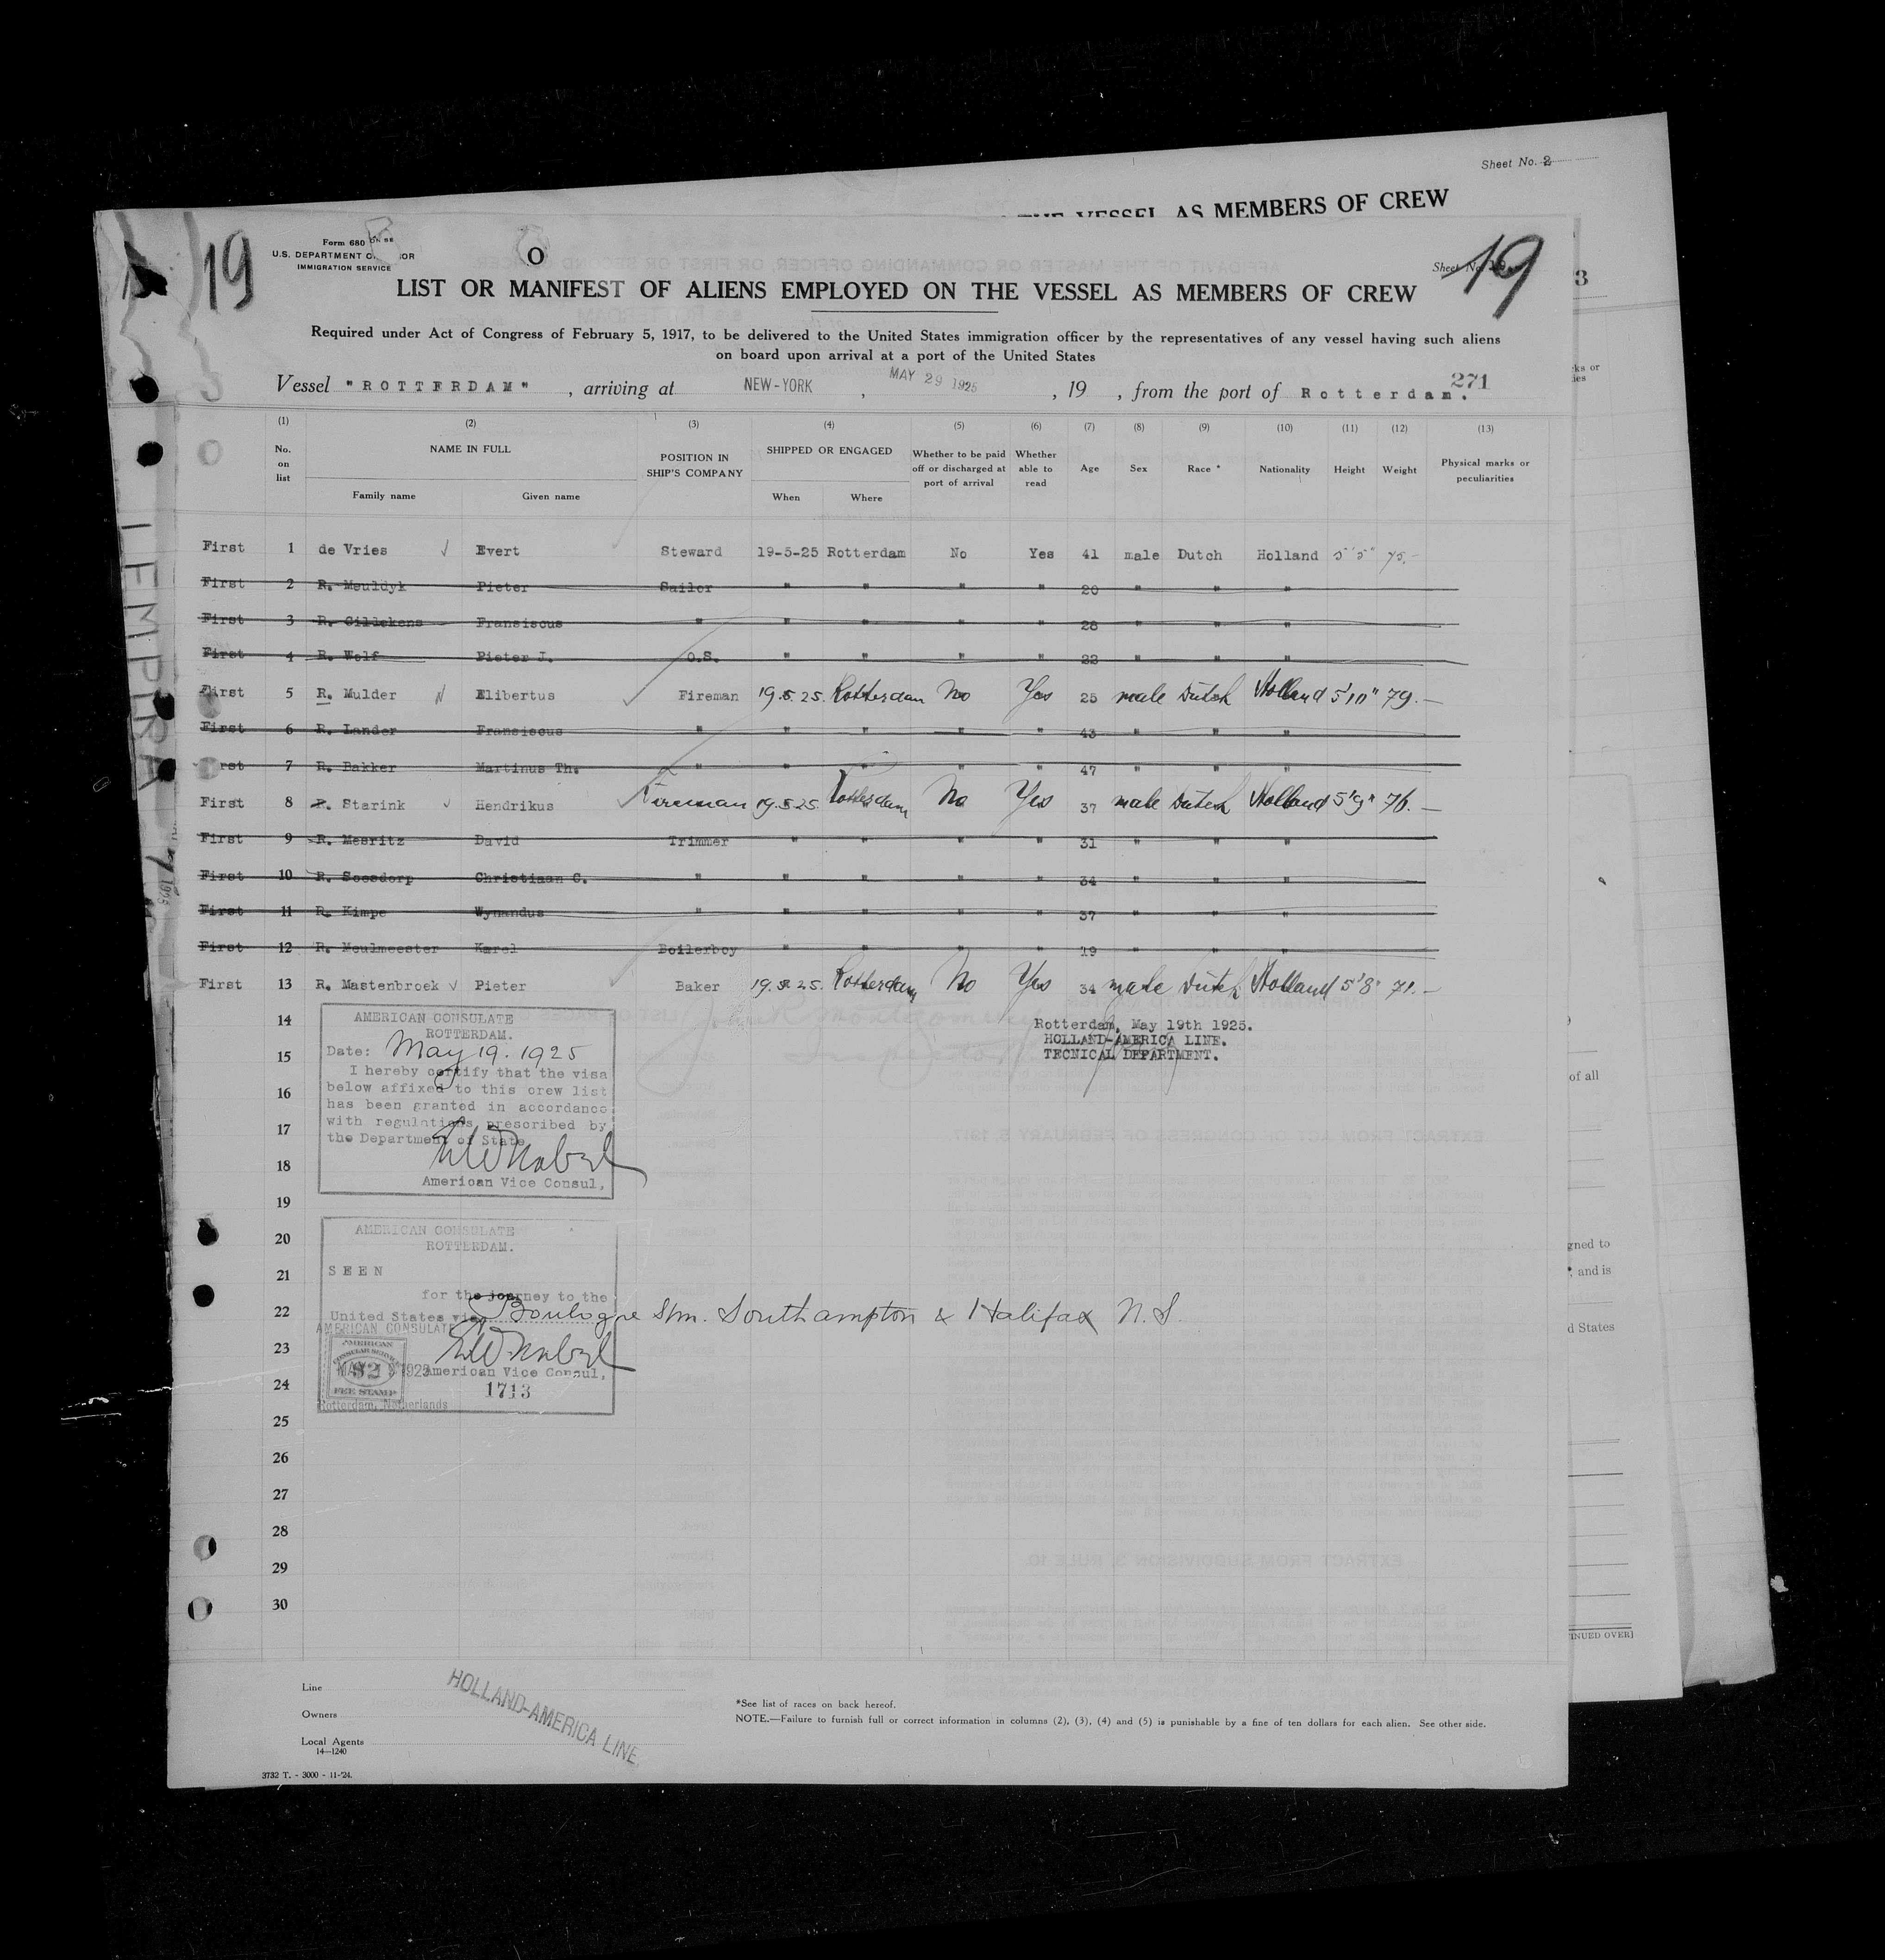 Sheet No. 2
THE VESSEL AS MEMBERS OF CREW
19
Form 680
U.S. DEPARTMENT OF LABOR
IMMIGRATION SERVICE
Sheet No. 19
19
LIST OR MANIFEST OF ALIENS EMPLOYED ON THE VESSEL AS MEMBERS OF CREW
Required under Act of Congress of February 5, 1917, to be delivered to the United States immigration officer by the representatives of any vessel having such aliens
on board upon arrival at a port of the United States
Vessel "ROTTERDAM", arriving at NEW-YORK, MAY 29 1925, 19 , from the port of Rotterdam.
271
(1) (2) (3) (4) (5) (6) (7) (8) (9) (10) (11) (12) (13)
No. on list NAME IN FULL Family name Given name POSITION IN SHIP'S COMPANY SHIPPED OR ENGAGED When Where Whether to be paid off or discharged at port of arrival Whether able to read Age Sex Race * Nationality Height Weight Physical marks or peculiarities
First 1 de Vries Evert Steward 19-5-25 Rotterdam No Yes 41 male Dutch Holland 5'5" 75.-
First 2 R. Meuldyk Pieter Sailor " " " " 20 " " "
First 3 R. Gillekens Fransiscus " " " " " 28 " " "
First 4 R. Wolf Pieter J. O.S. " " " " 22 " " "
First 5 R. Mulder Elibertus Fireman 19.5.25. Rotterdam No Yes 25 male Dutch Holland 5'11" 79.-
First 6 R. Lander Fransiscus " " " " " 43 " " "
First 7 R. Bakker Martinus Th. " " " " " 47 " " "
First 8 R. Starink Hendrikus Fireman 19.5.25. Rotterdam No Yes 37 male Dutch Holland 5'9" 76.-
First 9 R. Mesritz David Trimmer " " " " 31 " " "
First 10 R. Soesdorp Christiaan C. " " " " " 34 " " "
First 11 R. Kimpe Wynandus " " " " " 37 " " "
First 12 R. Meulmeester Karel Boilerboy " " " " 19 " " "
First 13 R. Mastenbroek Pieter Baker 19.5.25. Rotterdam No Yes 34 male Dutch Holland 5'8" 71.-
14
15
16
17
18
19
20
21
22
23
24
25
26
27
28
29
30
AMERICAN CONSULATE
ROTTERDAM.
Date: May 19. 1925
I hereby certify that the visa
below affixed to this crew list
has been granted in accordance
with regulations prescribed by
the Department of State
American Vice Consul,
Rotterdam, May 19th 1925.
HOLLAND-AMERICA LINE.
TECNICAL DEPARTMENT.
AMERICAN CONSULATE
ROTTERDAM.
SEEN
for the journey to the
United States via Boulogne s/m. Southampton & Halifax N.S.
AMERICAN CONSULATE
AMERICAN
CONSULAR SERVICE
$2
FEE STAMP
American Vice Consul,
1713
Rotterdam, Netherlands
Line
Owners
Local Agents
14-1240
HOLLAND-AMERICA LINE
*See list of races on back hereof.
NOTE.—Failure to furnish full or correct information in columns (2), (3), (4) and (5) is punishable by a fine of ten dollars for each alien. See other side.
3732 T. - 3000 - 11-'24.
of all
and is
d States